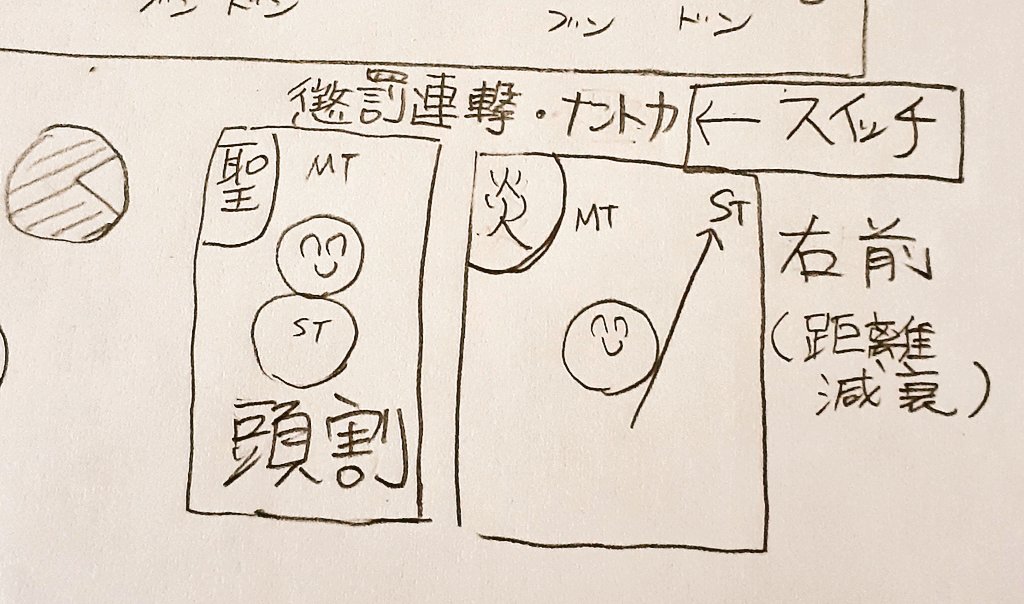 ブン ドン
ブン ドン
懲罰連撃・ナントカ ←スイッチ
聖 MT
ST
頭割
炎 MT ST
右前
(距離
減衰)